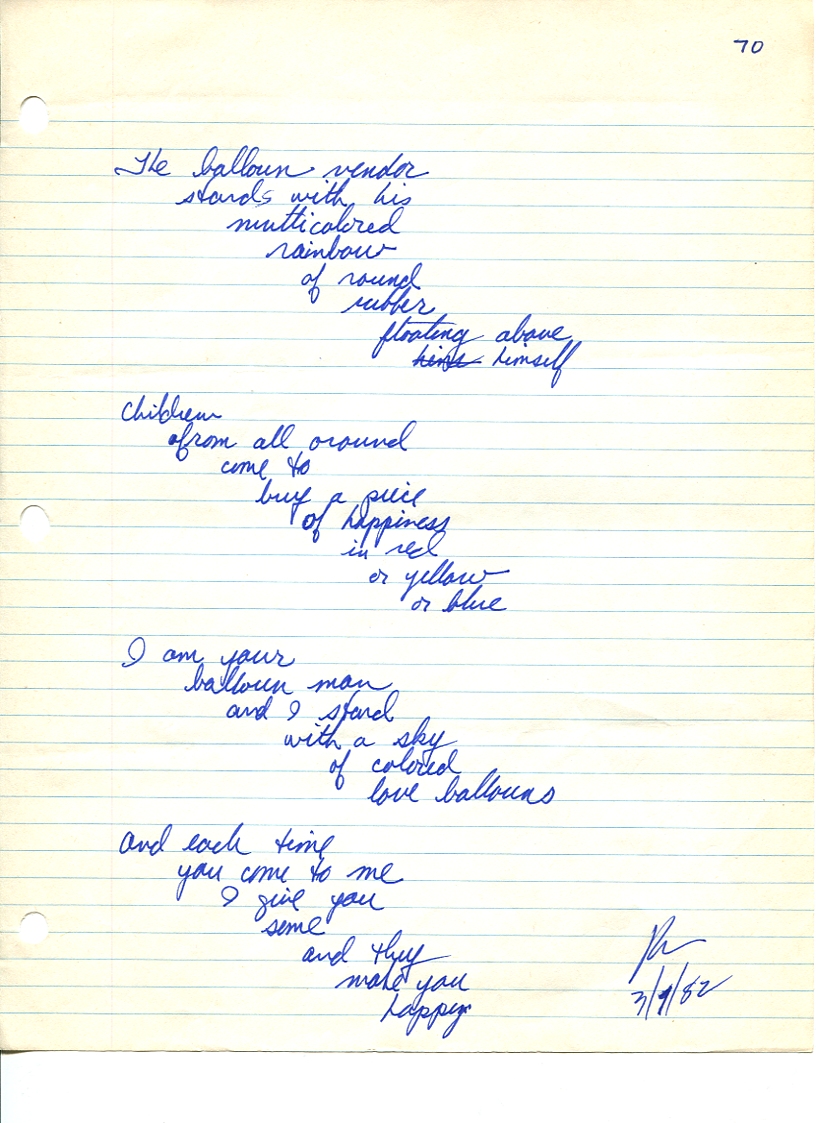 70
The balloun vendor
stands with his
multicolored
rainbow
of round
rubber
floating above
himself
Children
from all around
come to
buy a piece
of happiness
in red
or yellow
or blue
I am your
balloun man
and I stand
with a sky
of colored
love ballouns
and each time
you come to me
I give you
some
and they
make you
happy
3/9/82